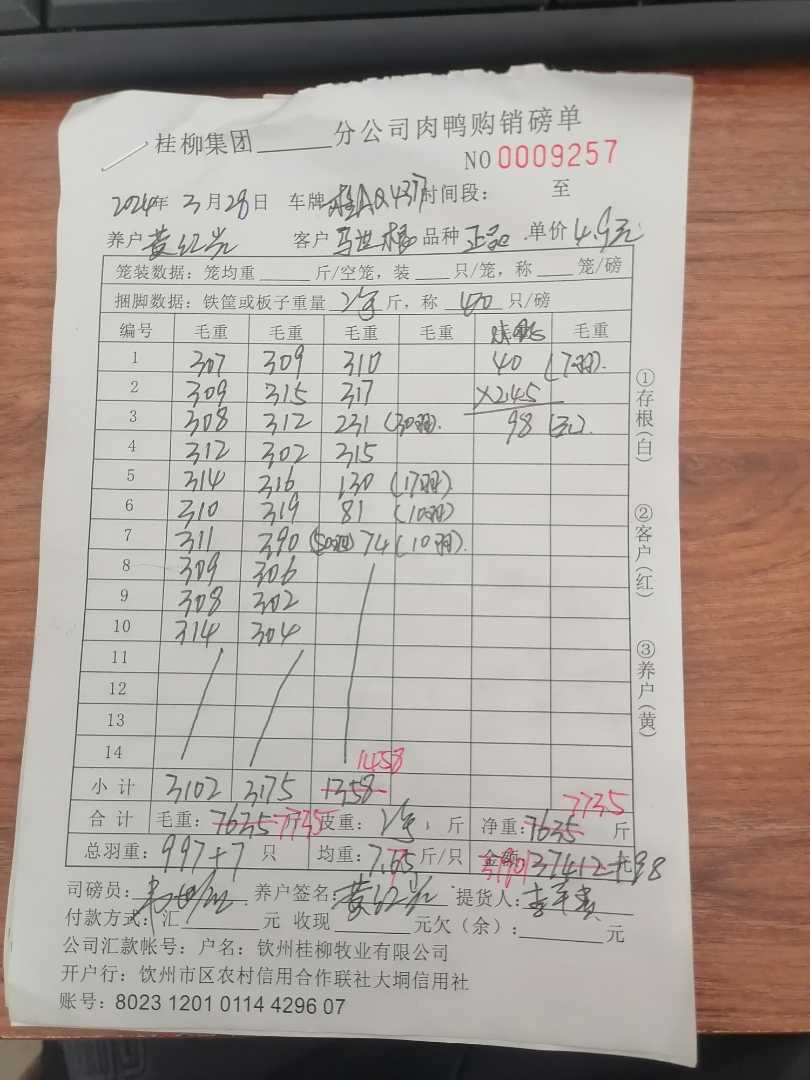 桂柳集团______分公司肉鸭购销磅单
NO 0009257
2024年 3月28日 车牌 时间段： 至
养户 黄红岩 客户 马世 品种 正品 单价 4.9元
笼装数据：笼均重____斤/空笼，装___只/笼，称___笼/磅
捆脚数据：铁筐或板子重量 斤，称 40 只/磅
编号 毛重 毛重 毛重 毛重 毛重
1 307 309 310 40 (7羽).
2 309 315 317 ×2.45
3 308 312 231 (30羽). 98 (元).
4 312 302 315
5 314 316 130 (17羽)
6 310 319 81 (10羽)
7 311 390 (50羽) 74 (10羽).
8 309 306
9 308 302
10 314 304
11
12
13
14 1458
小计 3102 3175 1358
7735
合计 毛重：7635 7735 皮重： 斤 净重：7635 斤
总羽重：997+7 只 均重：7. 5斤/只 金额 37412 元 +98
司磅员： 养户签名：黄红岩 提货人：
付款方式：汇________元 收现________元欠（余）：________元
公司汇款帐号：户名：钦州桂柳牧业有限公司
开户行：钦州市区农村信用合作联社大垌信用社
账号：8023 1201 0114 4296 07
①存根（白）
②客户（红）
③养户（黄）